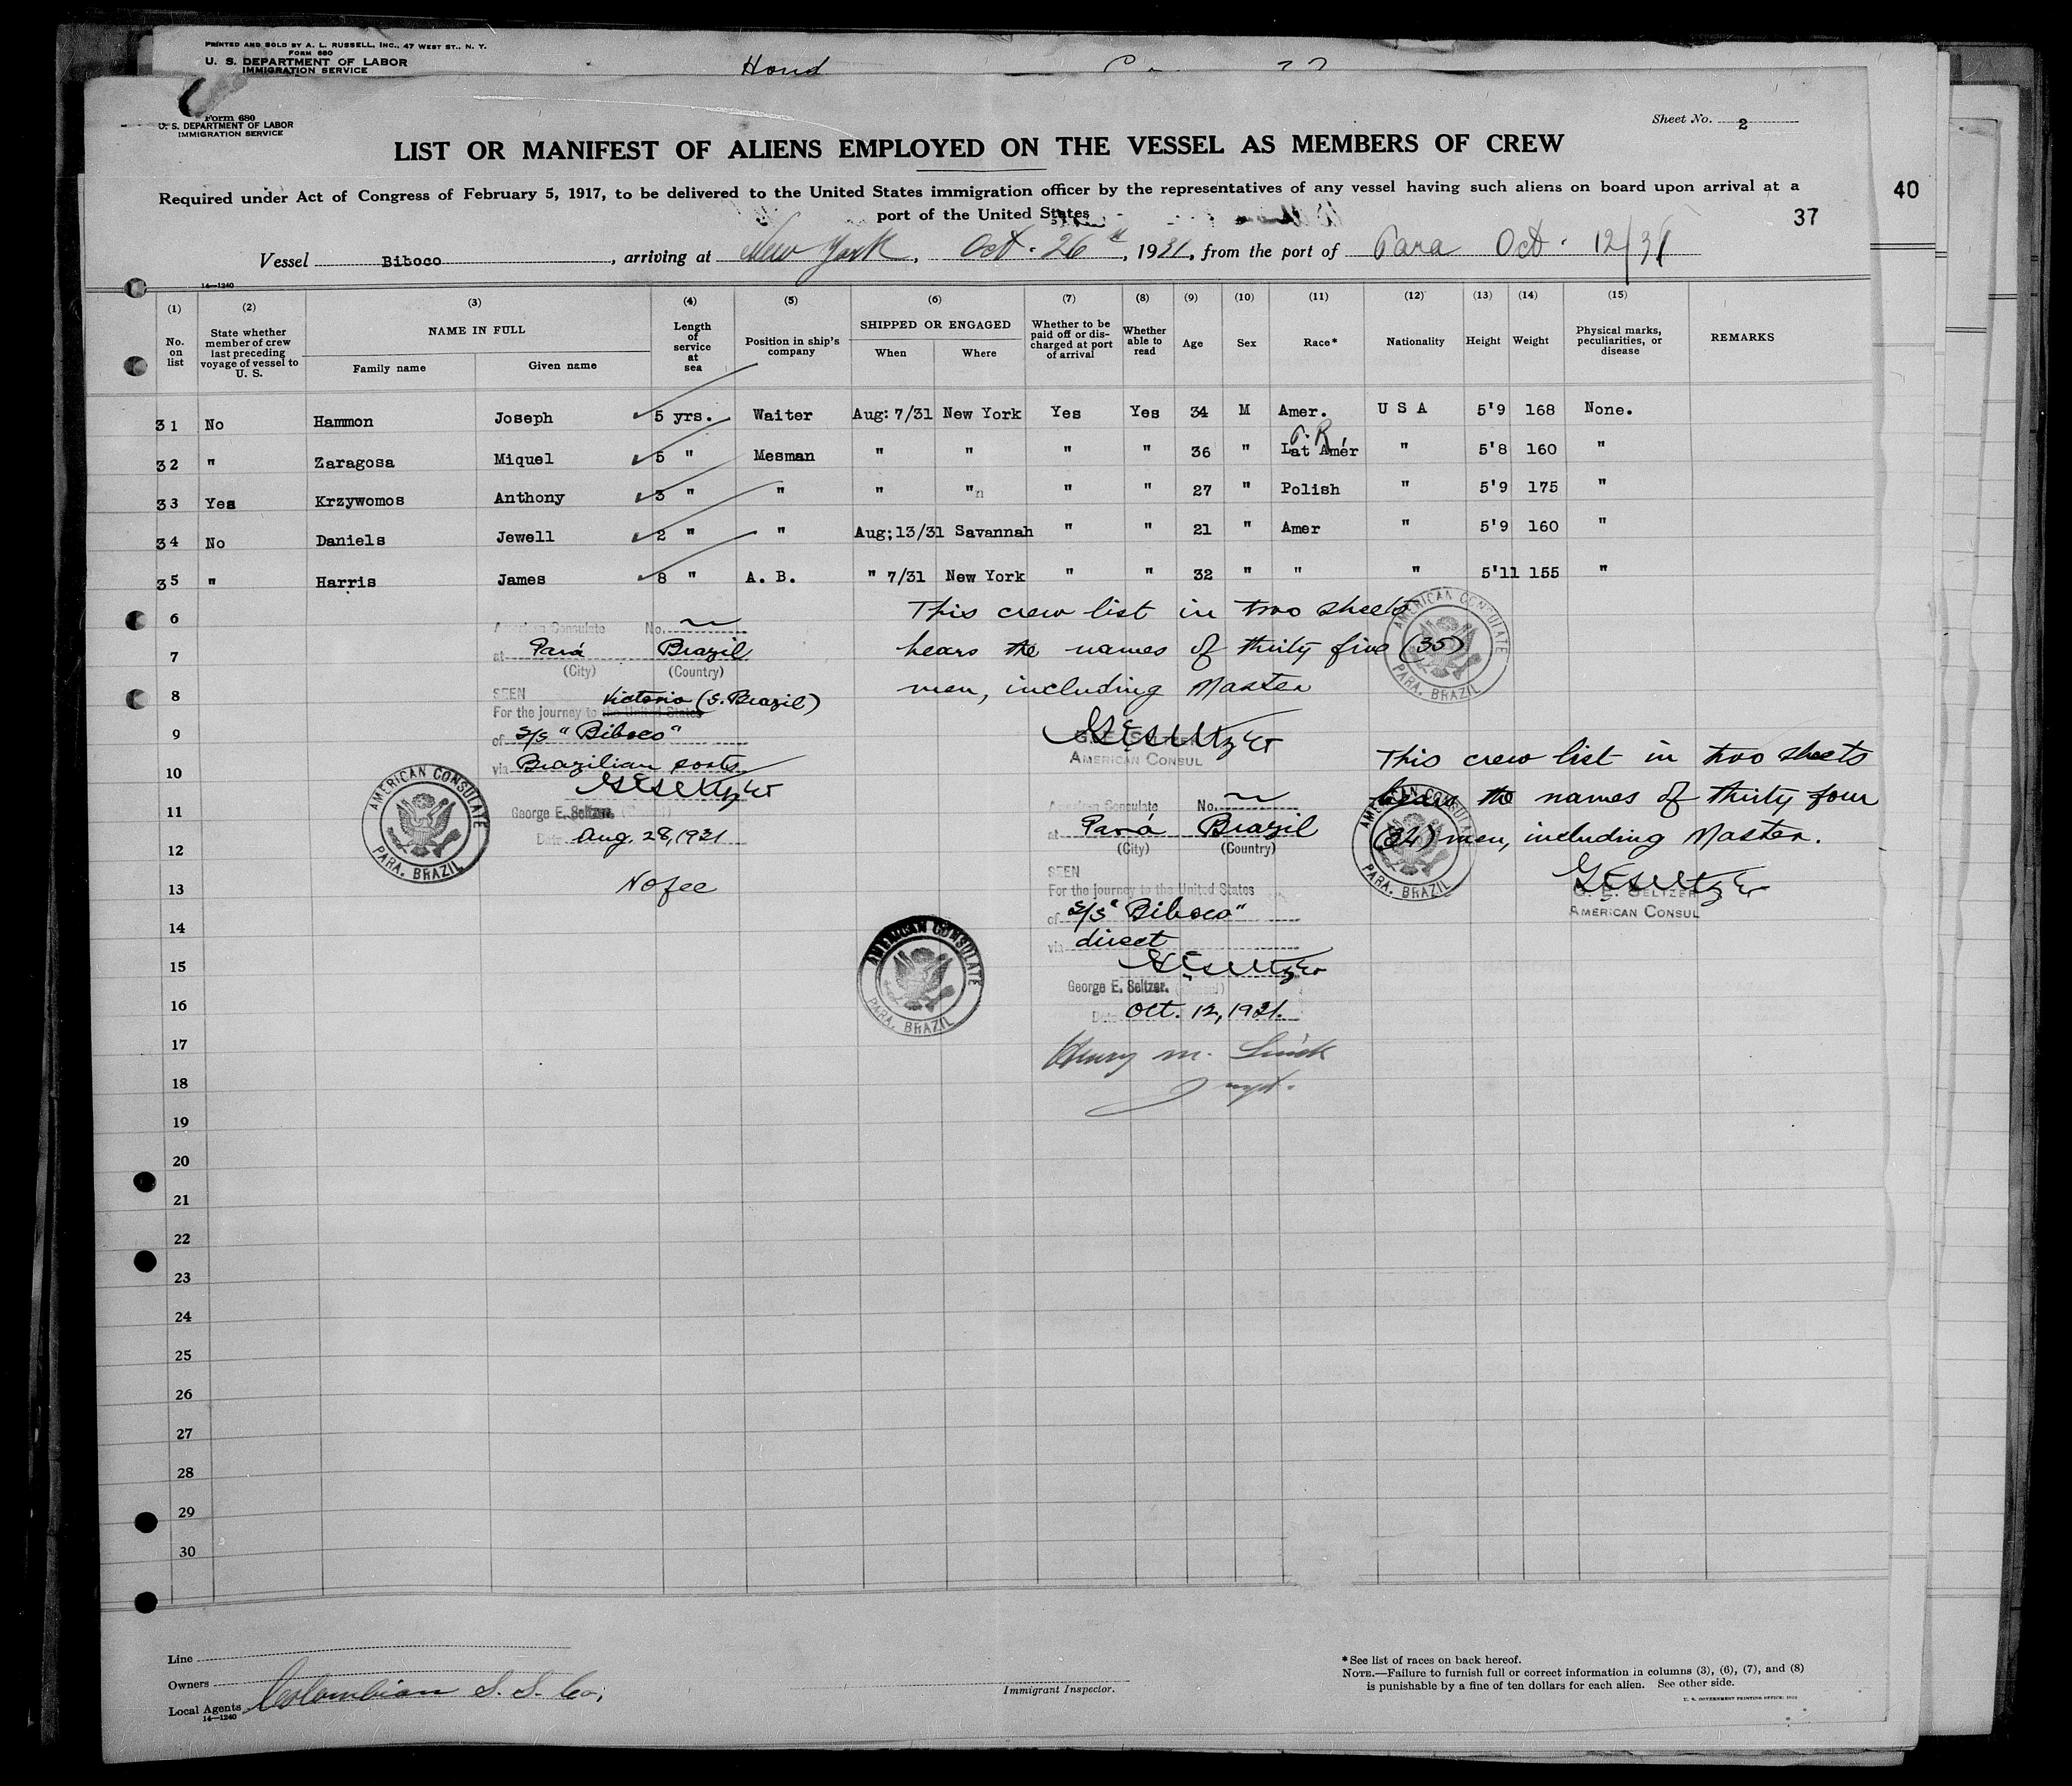 PRINTED AND SOLD BY A. L. RUSSELL, INC., 47 WEST ST., N. Y.
FORM 680
U. S. DEPARTMENT OF LABOR
IMMIGRATION SERVICE
Form 680
U. S. DEPARTMENT OF LABOR
IMMIGRATION SERVICE
Sheet No. 2
LIST OR MANIFEST OF ALIENS EMPLOYED ON THE VESSEL AS MEMBERS OF CREW
Required under Act of Congress of February 5, 1917, to be delivered to the United States immigration officer by the representatives of any vessel having such aliens on board upon arrival at a
port of the United States
37
40
Vessel Biboco, arriving at New York, Oct. 26th, 1931, from the port of Para Oct. 12/31
14—1240
(1) (2) (3) (4) (5) (6) (7) (8) (9) (10) (11) (12) (13) (14) (15)
No. on list
State whether member of crew last preceding voyage of vessel to U. S.
NAME IN FULL
Family name Given name
Length of service at sea
Position in ship's company
SHIPPED OR ENGAGED
When Where
Whether to be paid off or discharged at port of arrival
Whether able to read
Age Sex Race* Nationality Height Weight
Physical marks, peculiarities, or disease
REMARKS
31 No Hammon Joseph 5 yrs. Waiter Aug: 7/31 New York Yes Yes 34 M Amer. U S A 5'9 168 None.
P.R.
32 " Zaragosa Miquel 5 " Mesman " " " " 36 " Lat Amer " 5'8 160 "
33 Yes Krzywomos Anthony 3 " " " " " " 27 " Polish " 5'9 175 "
34 No Daniels Jewell 2 " " Aug;13/31 Savannah " " 21 " Amer " 5'9 160 "
35 " Harris James 8 " A. B. " 7/31 New York " " 32 " " " 5'11 155 "
6
7
8
9
10
11
12
13
14
15
16
17
18
19
20
21
22
23
24
25
26
27
28
29
30
American Consulate No.
at Pará Brazil
(City) (Country)
SEEN Victoria (S. Brazil)
For the journey to the United States
of S/S "Biboco"
via Brazilian ports
George E. Seltzer
Date Aug. 28, 1931
No fee
AMERICAN CONSULATE
PARA, BRAZIL
This crew list in two sheets
bears the names of thirty five (35)
men, including Master
AMERICAN CONSUL
AMERICAN CONSULATE
PARA, BRAZIL
American Consulate No.
at Pará Brazil
(City) (Country)
SEEN
For the journey to the United States
of S/S "Biboco"
via direct
George E. Seltzer.
Date Oct. 12, 1931.
AMERICAN CONSULATE
PARA, BRAZIL
This crew list in two sheets
bears the names of thirty four
(34) men, including Master.
G. E. SELTZER
AMERICAN CONSUL
AMERICAN CONSULATE
PARA, BRAZIL
Henry M.
Line
Owners
Local Agents Colombian S. S. Co.
14—1240
Immigrant Inspector.
*See list of races on back hereof.
NOTE.—Failure to furnish full or correct information in columns (3), (6), (7), and (8)
is punishable by a fine of ten dollars for each alien. See other side.